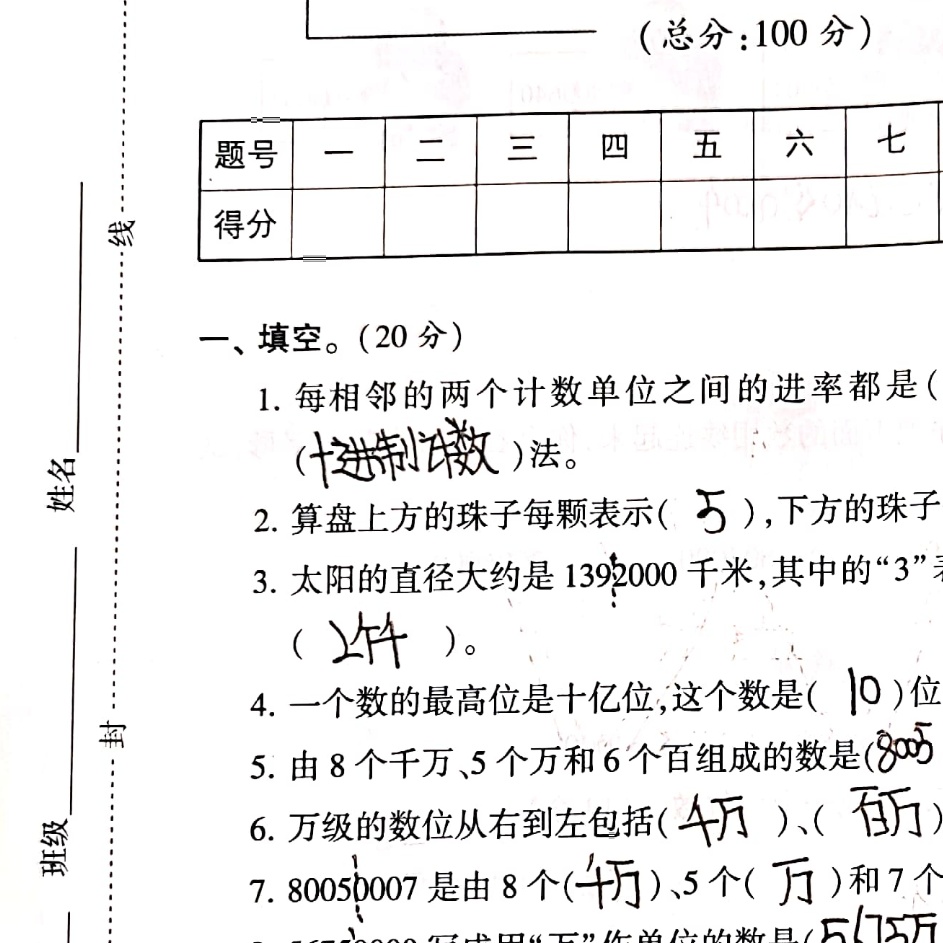 (总分:100 分)
题号 一 二 三 四 五 六 七
得分
线
姓名
封
班级
一、填空。(20 分)
1. 每相邻的两个计数单位之间的进率都是(
(十进制计数)法。
2. 算盘上方的珠子每颗表示( 5 ),下方的珠子
3. 太阳的直径大约是 1392000 千米,其中的“3”
( )。
4. 一个数的最高位是十亿位,这个数是( 10 )位
5. 由 8 个千万、5 个万和 6 个百组成的数是(8005
6. 万级的数位从右到左包括( 千万 )、( 百万 )
7. 80050007 是由 8 个(千万)、5 个( 万 )和 7 个
写成用“万”作单位的数是(5675万